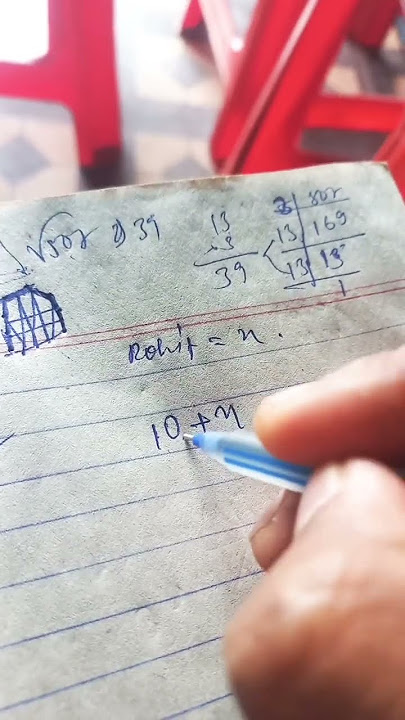 √507
39
13
×3
39
3 507
13 169
13 13
1
Rohit = x.
10 + x